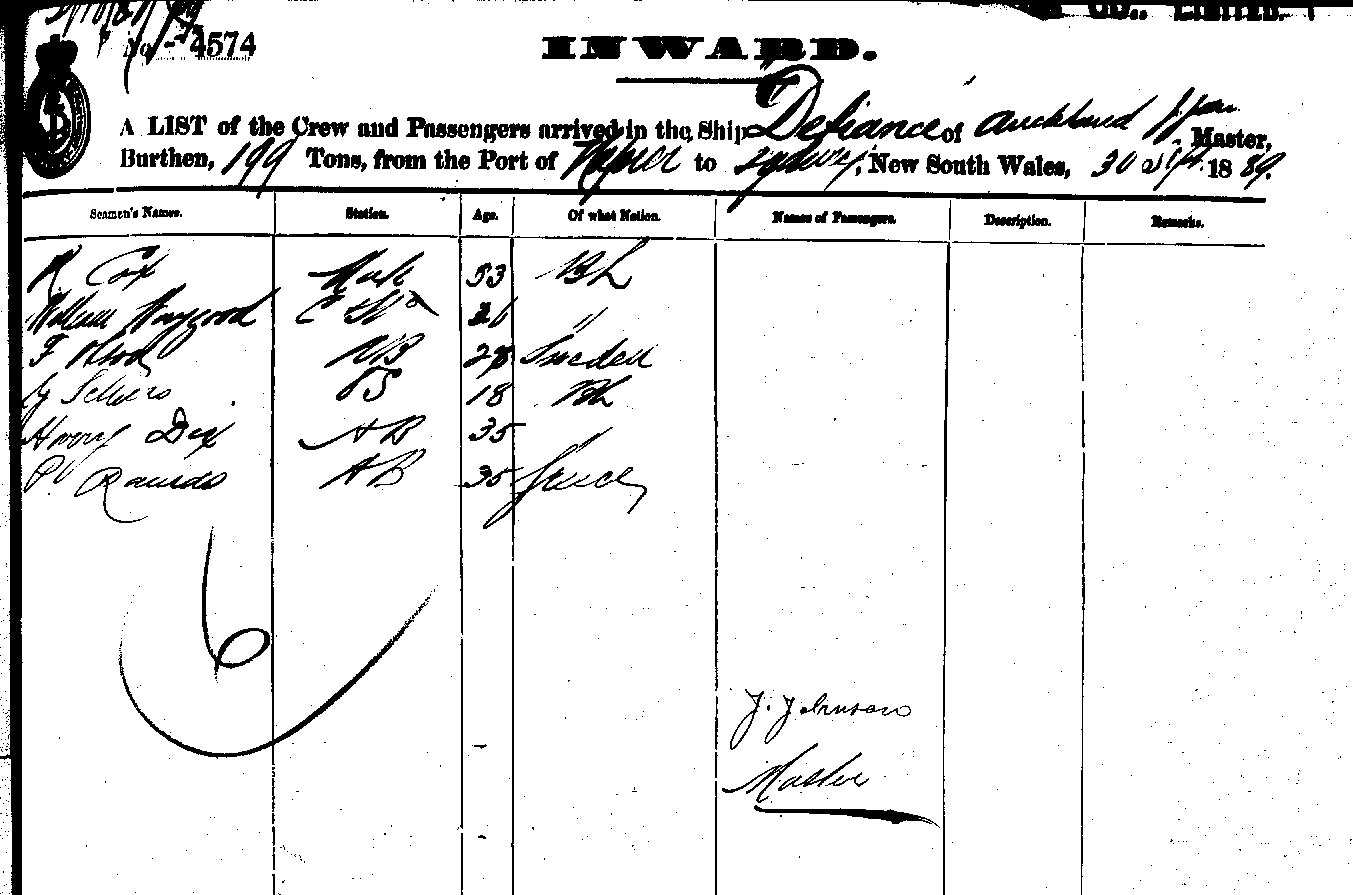 No. 4574
INWARD.
A LIST of the Crew and Passengers arrived in the Ship Defiance of Auckland Master,
Burthen, 199 Tons, from the Port of Napier to Sydney, New South Wales, 30 Sept. 1889.
Seamen's Names. Station. Age. Of what Nation. Names of Passengers. Description. Remarks.
R. Cox Mate 53 Bh
William Haygood 26 "
F 28 Sweden
18 Bh
Harry Dix AB 35
AB 35 Greece
6
J. Johnson
Master